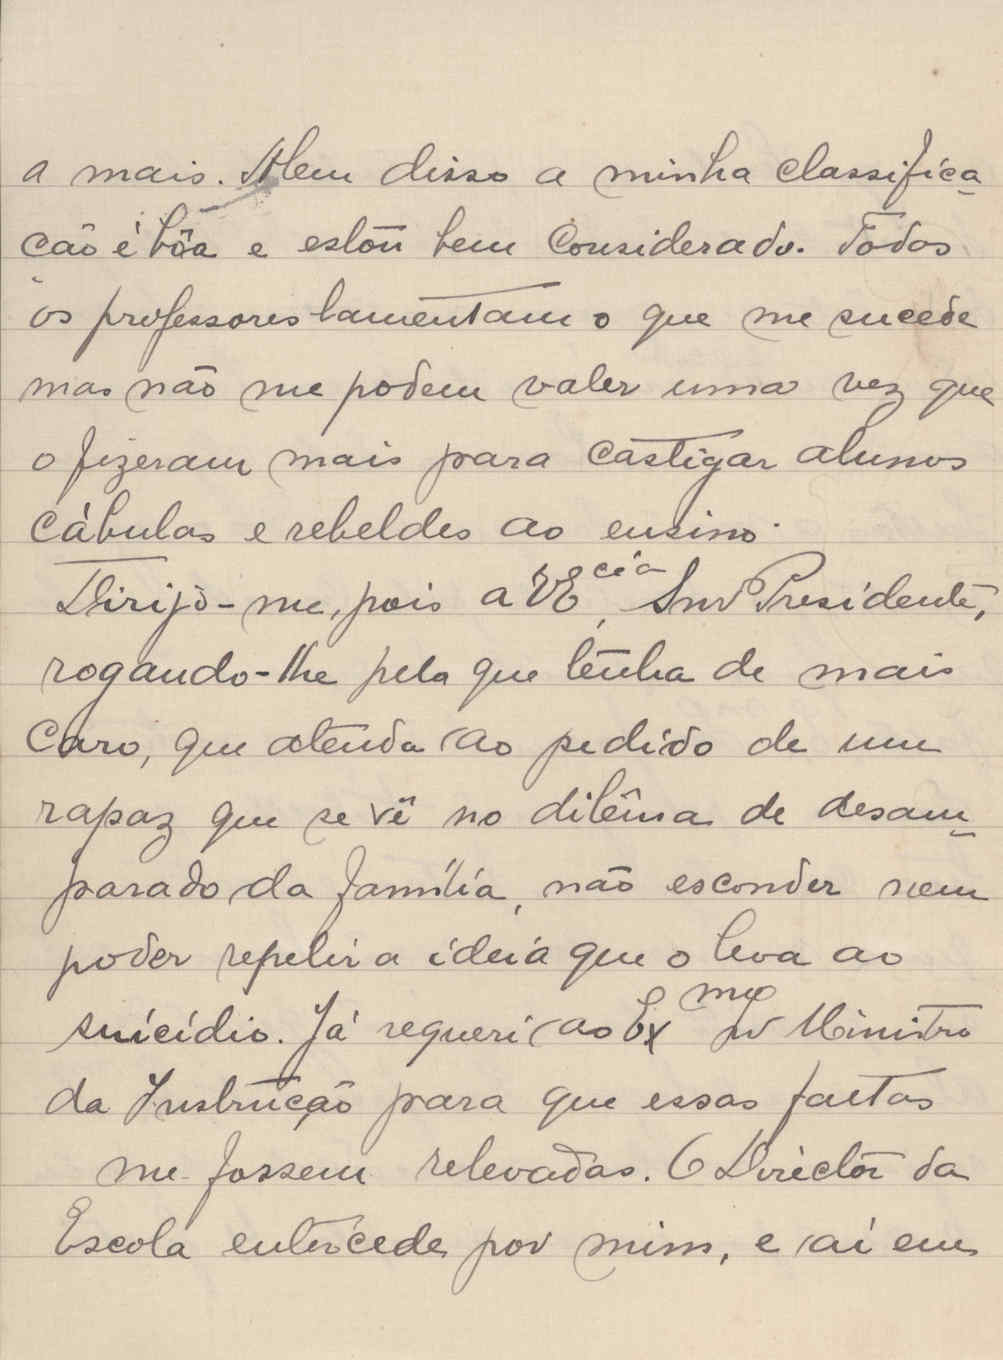 a mais. Alem disso a minha classifica
cão é bôa e estou bem considerado. Todos
os professores lamentam o que me sucede
mas não me podem valer uma vez que
o fizeram mais para castigar alunos
cábulas e rebeldes ao ensino.
Dirijo-me, pois a V Ecia, Snr Presidente,
rogando-lhe pelo que tenha de mais
caro, que atenda ao pedido de um
rapaz que se vê no dilêma de desam-
parado da família, não esconder nem
poder repelir a ideia que o leva ao
suicídio. Já requeri ao Exmo Snr Ministro
da Instrução para que essas faltas
me fossem relevadas. O Director da
Escola entercede por mim, e aí em